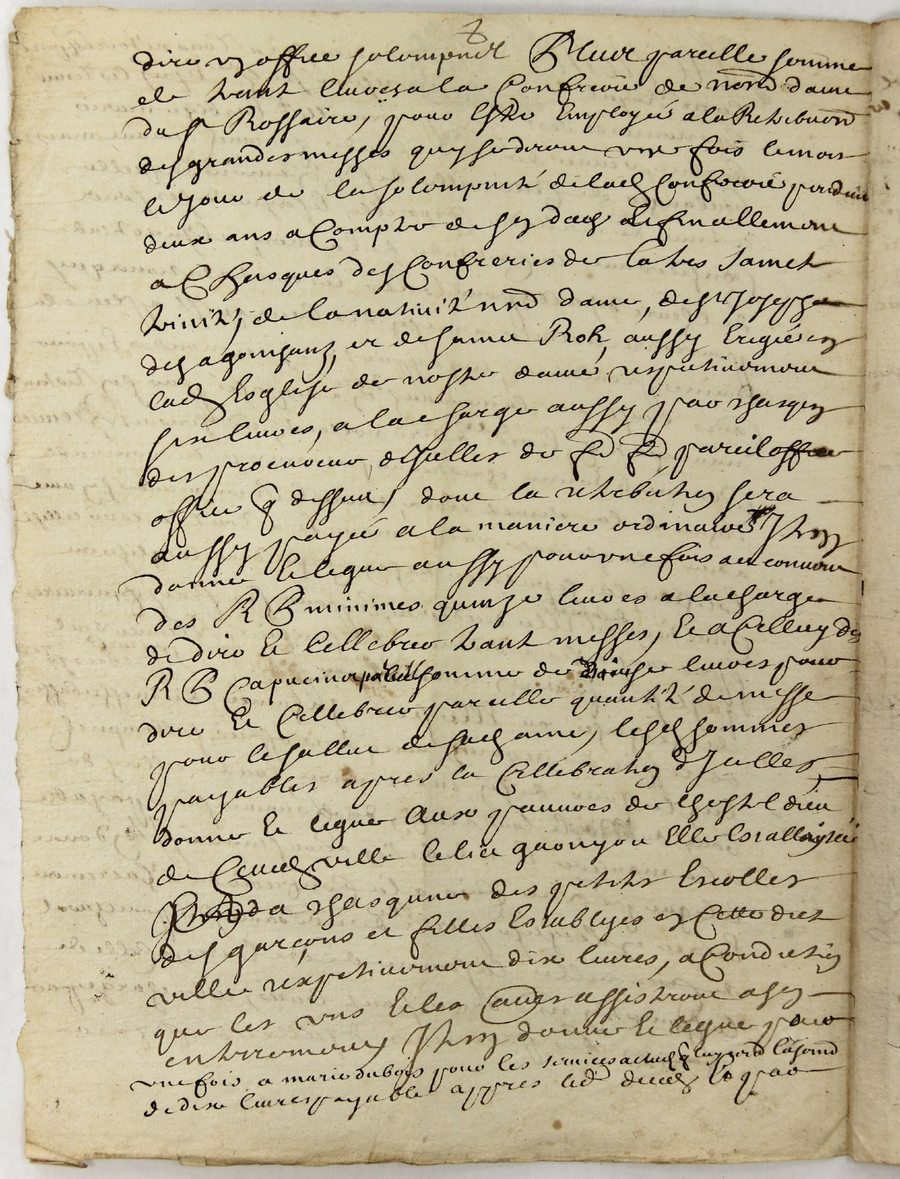 dire un office solompnel Plus pareille somme
de trent livres a la Confrerie de nortd dame
du st Rossaire, pour estre Employée a la Retribuon
des grandes messes quy se diront une fois le mois
le jour de la solompnité de lad Confrerie pendant
deux ans a Compter de son daces et finallement
a Chasques des Confreries de la tres sainct
trinité, de la nativité nrd dame, de st Joseph
des agonisans, et de sainct Rok, aussy Erigée en
lad Esglise de nostre dame respectivement
six livres, a la charge aussy par chasqun
des procureur dycelles de pareil
office q dessus, dont la retribution sera
aussy payée a la maniere ordinaire Item
donne et legue aussy pour une fois au convent
des R P minimes quinze livres a la charge
de dire et Cellebrer trant messes, Et a Celluy des
R P Capucins pareil somme de quinse livres pour
dire et Cellebrer pareille quantité de messe
pour le sallue de sad ame, lesd sommes
payables apres la Cellebration dycelles
donne et legue aux pauvres de lhostel dieu
de Cette ville le lit garny ou Elle Est
a chasqune des petits Escolles
des garçons et filles Establyes en Cette dict
ville respectivement dix livres, a Condiction
que les uns et les autres assistront a son
enterrement Item donne et legue pour
une fois a marie dubois pour les services la somme
de dix livres payable appres led deces